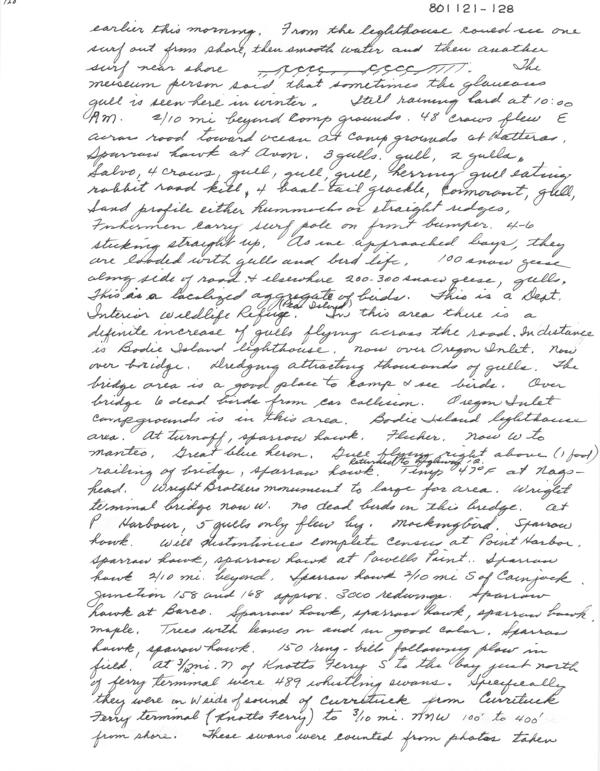 801121-128
earlier this morning. From the lighthouse could see one
surf out from shore, then smooth water and then another
surf near shore The
museum person said that sometimes the glaucous
gull is seen here in winter. Still raining hard at 10:00
A.M. 2/10 mi beyond camp grounds. 48 crows flew E
across road toward ocean at camp grounds at Hatteras.
Sparrow hawk at Avon. 3 gulls. gull, 2 gulls.
Salvo, 4 crows, gull, gull, gull, herring gull eating
rabbit road kill, 4 boat-tail grackle, cormorant, gull,
Sand profile either hummocks or straight ridges,
Fishermen carry surf pole on front bumper. 4-6
sticking straight up. As we approached bays, they
are loaded with gulls and bird life. 100 snow geese
along side of road & elsewhere 200-300 snow geese, gulls.
This is a localized aggregate of birds. This is a Dept.
Interior Wildlife Refuge. Pea Island In this area there is a
definite increase of gulls flying across the road. In distance
is Bodie Island lighthouse. now over Oregon Inlet. Now
over bridge. dredging attracting thousands of gulls. The
bridge area is a good place to camp & see birds. Over
bridge 6 dead birds from car collision. Oregon Inlet
campgrounds is in this area. Bodie Island lighthouse
area. At turnoff, sparrow hawk. Flicker. Now W to
Manteo, Great blue heron. Gull flying right above (1 foot)
railing of bridge, sparrow hawk. Returned to highway 12 Temp 47°F at Nags-
head. Wright Brothers monument to large for area. Wright
terminal bridge now W. no dead birds in this bridge. At
P Harbour, 5 gulls only flew by. Mockingbird. Sparrow
hawk. Will discontinue complete census at Point Harbor.
Sparrow hawk, sparrow hawk at Powells Point. Sparrow
hawk 2/10 mi. beyond. Sparrow hawk 2/10 mi S of Coinjock.
Junction 158 and 168 approx. 3000 redwings. Sparrow
hawk at Barco. Sparrow hawk, sparrow hawk, sparrow hawk.
maple. Trees with leaves on and in good color. Sparrow
hawk, sparrow hawk. 150 ring-bills following plow in
field. At 3/10 mi. N of Knotts Ferry S to the bay just north
of ferry terminal were 489 whistling swans. Specifically
they were on W side of sound of Currituck from Currituck
Ferry terminal (Knotts Ferry) to 3/10 mi. NNW 100' to 400'
from shore. These swans were counted from photos taken